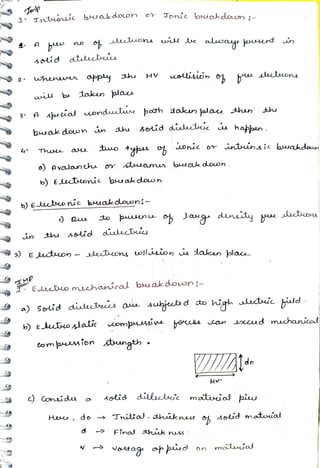 Imp
1- Intrinsic breakdown or Ionic breakdown :-
1- A few no of electrons will be always present in
solid dielectrics
2- whenever apply the HV collision of free electrons
will be taken place
3- A special conductive path taken place then the
breakdown in the solid dielectric is happen.
4- There are two types of ionic or intrinsic breakdown
a) Avalanche or streamer breakdown.
b) Electronic breakdown
b) Electronic breakdown:-
1) Due to presence of large density free electrons
in the solid dielectrics
2) Electron - electrons collision is taken place.
IMP
2- Electro mechanical breakdown :-
a) Solid dielectrics are subjected to high electric field.
b) Electrostatic compressive forces can exceed mechanical
compression strength.
do
HV
c) Consider a solid dillectric material piece
Here, do → Initial thickness of solid material
d → Final thickness
V → Voltage applied on material